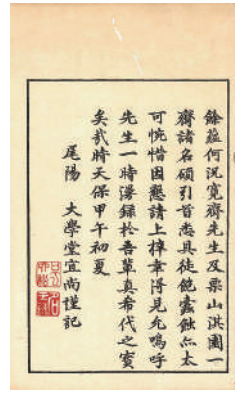 餘蘊何況寬齋先生及栗山淇園一
齋諸名碩引首悉具徒飽蠹蝕亦太
可惋惜因懇請上梓幸得見允嗚呼
先生一時漫錄於吾輩真希代之寶
矣哉時天保甲午初夏
尾陽　大學堂宜尚謹記